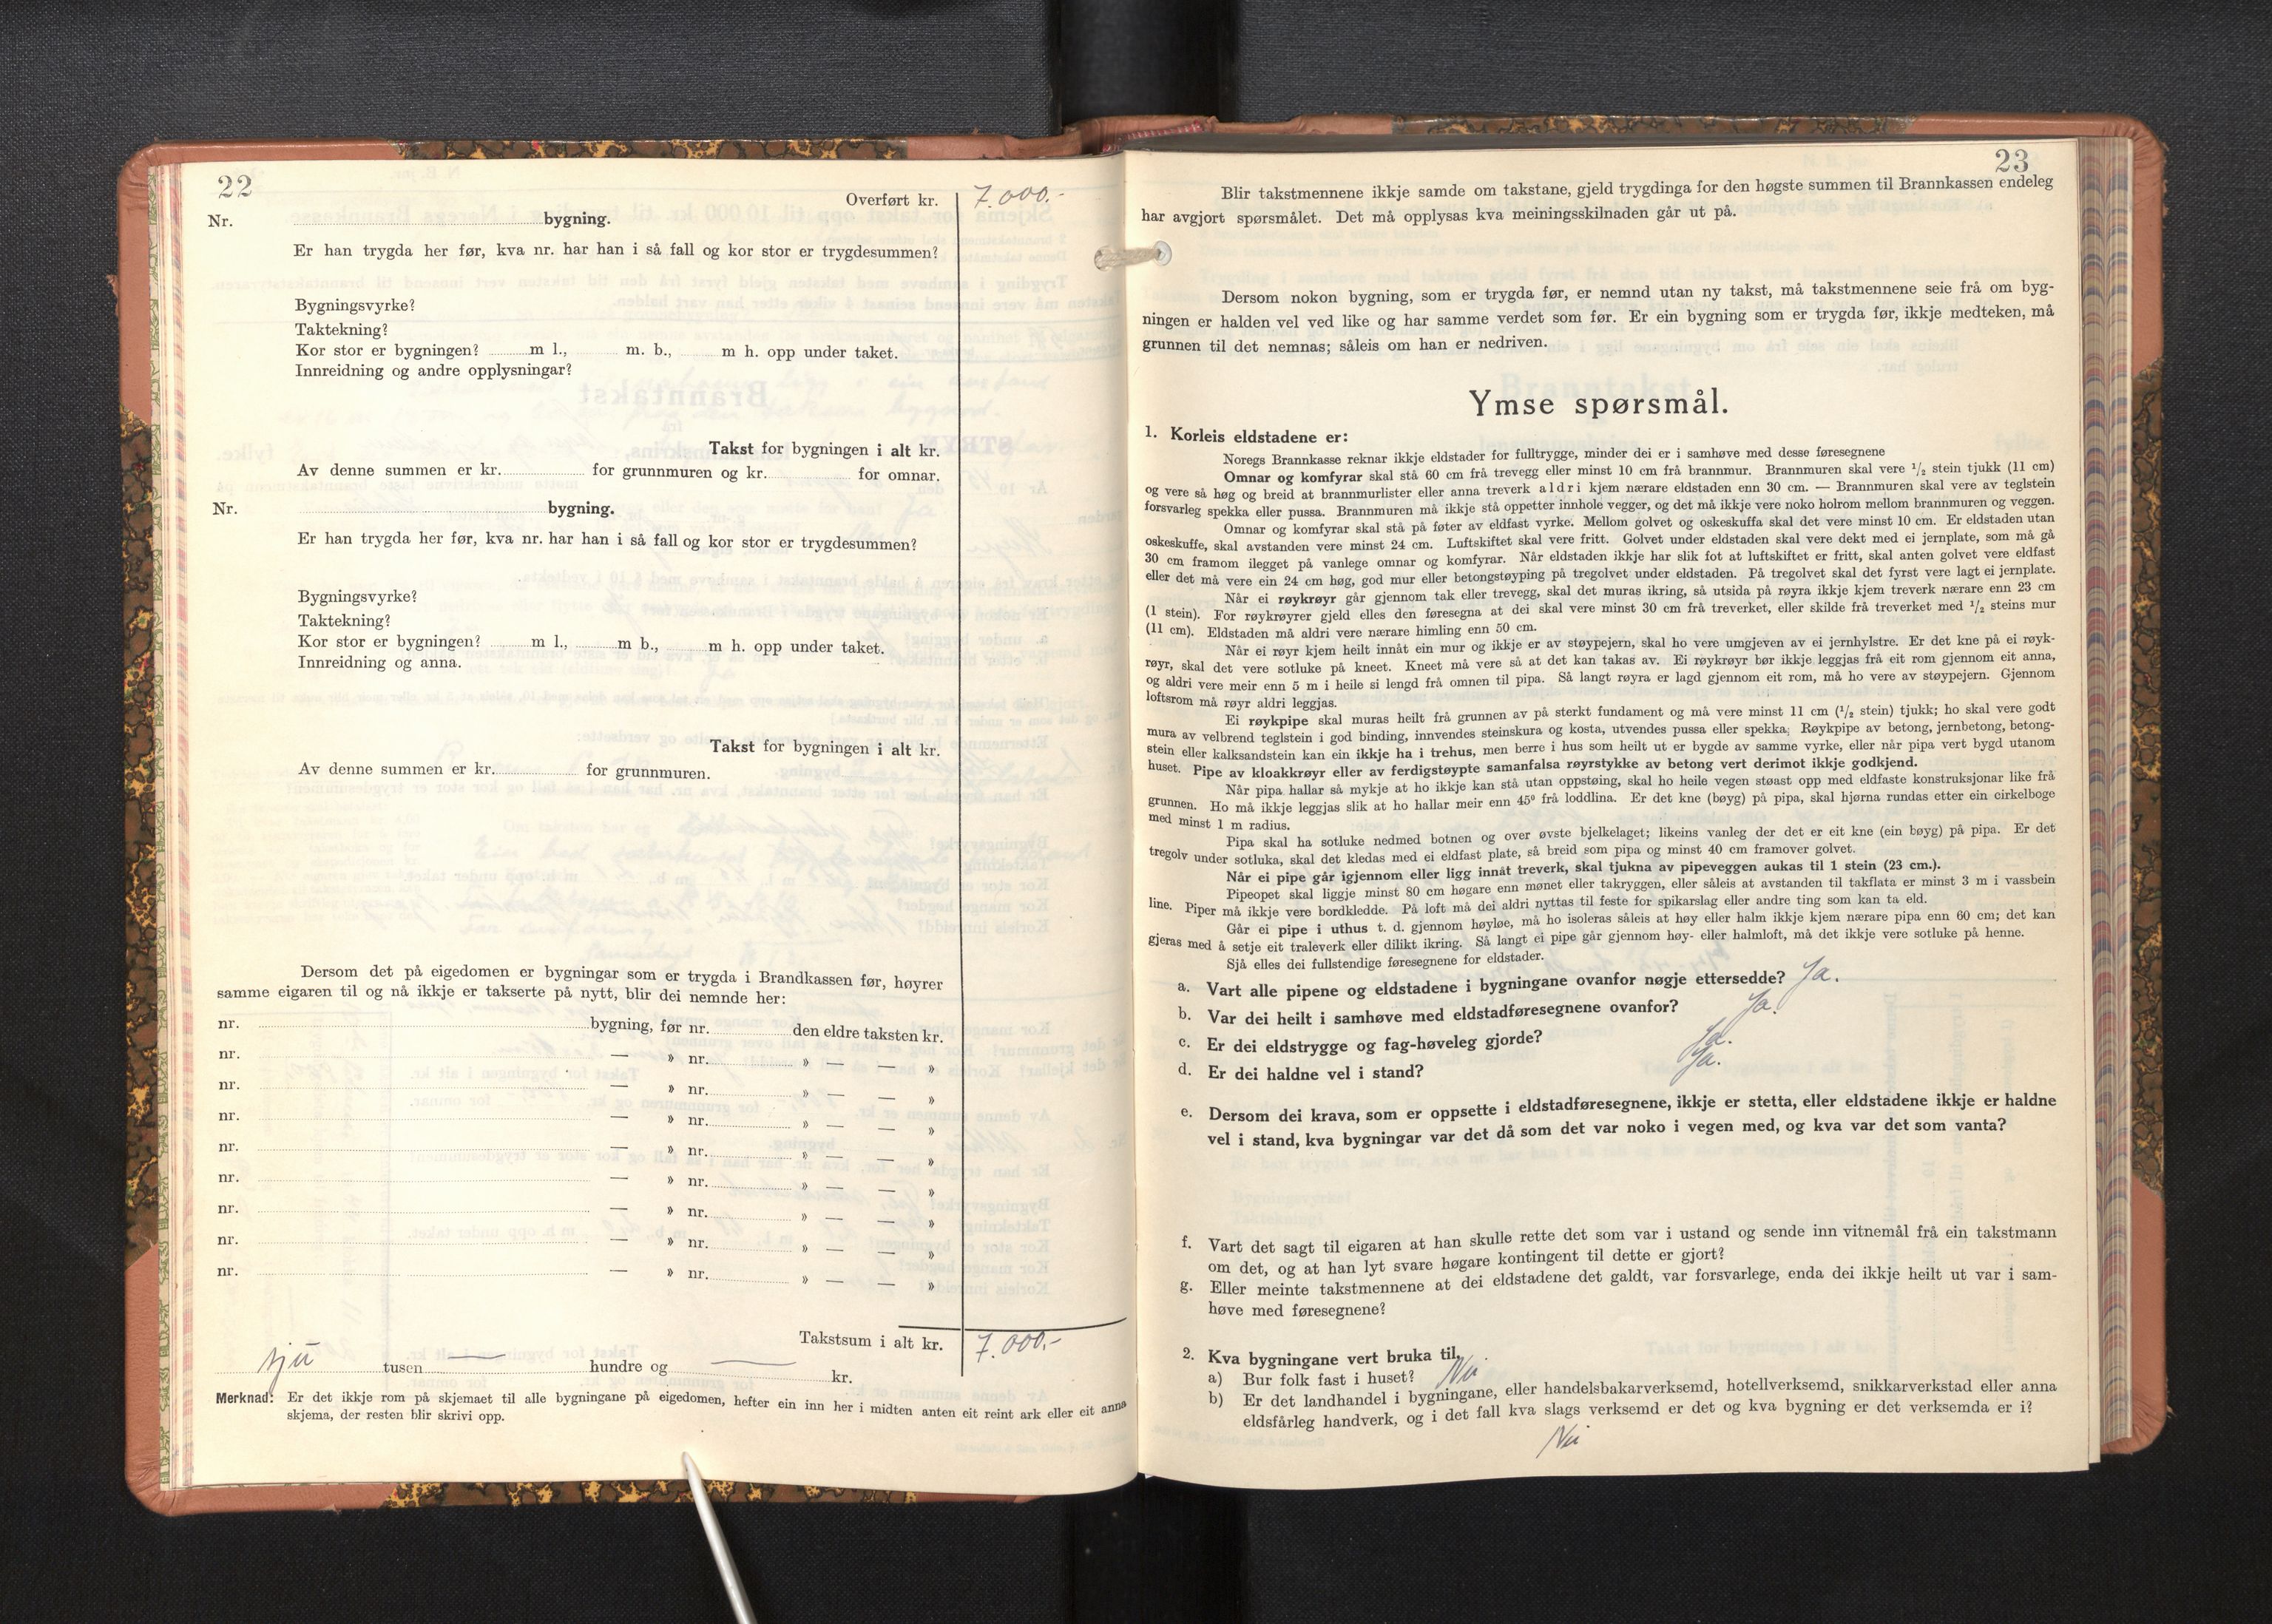 22
Overført kr. 7.000.-
Nr. bygning.
Er han trygda her før, kva nr. har han i så fall og kor stor er trygdesummen?
Bygningsvyrke?
Taktekning?
Kor stor er bygningen? m l., m. b., m h. opp under taket.
Innreidning og andre opplysningar?
Takst for bygningen i alt kr.
Av denne summen er kr. for grunnmuren og kr. for omnar.
Nr. bygning.
Er han trygda her før, kva nr. har han i så fall og kor stor er trygdesummen?
Bygningsvyrke?
Taktekning?
Kor stor er bygningen? m l., m b., m h. opp under taket.
Innreidning og anna.
Takst for bygningen i alt kr.
Av denne summen er kr. for grunnmuren.
Dersom det på eigedomen er bygningar som er trygda i Brandkassen før, høyrer
samme eigaren til og nå ikkje er takserte på nytt, blir dei nemnde her:
nr. bygning, før nr. den eldre taksten kr.
nr. — » nr. » — — »
nr. — » nr. » — — »
nr. — » nr. » — — »
nr. — » nr. » — — »
nr. — » nr. » — — »
nr. — » nr. » — — »
nr. — » nr. » — — »
nr. — » nr. » — — »
Takstsum i alt kr. 7.000.-
sju tusen — hundre og — kr.
Merknad: Er det ikkje rom på skjemaet til alle bygningane på eigedomen, hefter ein inn her i midten anten eit reint ark eller eit anna
skjema, der resten blir skrivi opp.
23
Blir takstmennene ikkje samde om takstane, gjeld trygdinga for den høgste summen til Brannkassen endeleg
har avgjort spørsmålet. Det må opplysas kva meiningsskilnaden går ut på.
Dersom nokon bygning, som er trygda før, er nemnd utan ny takst, må takstmennene seie frå om byg-
ningen er halden vel ved like og har samme verdet som før. Er ein bygning som er trygda før, ikkje medteken, må
grunnen til det nemnas; såleis om han er nedriven.
Ymse spørsmål.
1. Korleis eldstadene er:
Noregs Brannkasse reknar ikkje eldstader for fulltrygge, minder dei er i samhøve med desse føresegnene
Omnar og komfyrar skal stå 60 cm frå trevegg eller minst 10 cm frå brannmur. Brannmuren skal vere 1/2 stein tjukk (11 cm)
og vere så høg og breid at brannmurlister eller anna treverk aldri kjem nærare eldstaden enn 30 cm. — Brannmuren skal vere av teglstein
forsvarleg spekka eller pussa. Brannmuren må ikkje stå oppetter innhole vegger, og det må ikkje vere noko holrom mellom brannmuren og veggen.
Omnar og komfyrar skal stå på føter av eldfast vyrke. Mellom golvet og oskeskuffa skal det vere minst 10 cm. Er eldstaden utan
oskeskuffe, skal avstanden vere minst 24 cm. Luftskiftet skal vere fritt. Golvet under eldstaden skal vere dekt med ei jernplate, som må gå
30 cm framom ilegget på vanlege omnar og komfyrar. Når eldstaden ikkje har slik fot at luftskiftet er fritt, skal anten golvet vere eldfast
eller det må vere ein 24 cm høg, god mur eller betongstøyping på tregolvet under eldstaden. På tregolvet skal det fyrst vere lagt ei jernplate.
Når ei røykrøyr går gjennom tak eller trevegg, skal det muras ikring, så utsida på røyra ikkje kjem treverk nærare enn 23 cm
(1 stein). For røykrøyrer gjeld elles den føresegna at dei skal vere minst 30 cm frå treverket, eller skilde frå treverket med 1/2 steins mur
(11 cm). Eldstaden må aldri vere nærare himling enn 50 cm.
Når ei røyr kjem heilt innåt ein mur og ikkje er av støypejern, skal ho vere umgjeven av ei jernhylstre. Er det kne på ei røyk-
røyr, skal det vere sotluke på kneet. Kneet må vere så at det kan takas av. Ei røykrøyr bør ikkje leggjas frå eit rom gjennom eit anna,
og aldri vere meir enn 5 m i heile si lengd frå omnen til pipa. Så langt røyra er lagd gjennom eit rom, må ho vere av støypejern. Gjennom
loftsrom må røyr aldri leggjas.
Ei røykpipe skal muras heilt frå grunnen av på sterkt fundament og må vere minst 11 cm (1/2 stein) tjukk; ho skal vere godt
mura av velbrend teglstein i god binding, innvendes steinskura og kosta, utvendes pussa eller spekka. Røykpipe av betong, jernbetong, betong-
stein eller kalksandstein kan ein ikkje ha i trehus, men berre i hus som heilt ut er bygde av samme vyrke, eller når pipa vert bygd utanom
huset. Pipe av kloakkrøyr eller av ferdigstøypte samanfalsa røyrstykke av betong vert derimot ikkje godkjend.
Når pipa hallar så mykje at ho ikkje kan stå utan oppstøing, skal ho heile vegen støast opp med eldfaste konstruksjonar like frå
grunnen. Ho må ikkje leggjas slik at ho hallar meir enn 45° frå loddlina. Er det kne (bøyg) på pipa, skal hjørna rundas etter ein cirkelboge
med minst 1 m radius.
Pipa skal ha sotluke nedmed botnen og over øvste bjelkelaget; likeins vanleg der det er eit kne (ein bøyg) på pipa. Er det
tregolv under sotluka, skal det kledas med ei eldfast plate, så breid som pipa og minst 40 cm framover golvet.
Når ei pipe går igjennom eller ligg innåt treverk, skal tjukna av pipeveggen aukas til 1 stein (23 cm.).
Pipeopet skal liggje minst 80 cm høgare enn mønet eller takryggen, eller såleis at avstanden til takflata er minst 3 m i vassbein
line. Piper må ikkje vere bordkledde. På loft må dei aldri nyttas til feste for spikarslag eller andre ting som kan ta eld.
Går ei pipe i uthus t. d. gjennom høyløe, må ho isoleras såleis at høy eller halm ikkje kjem nærare pipa enn 60 cm; det kan
gjeras med å setje eit traleverk eller dilikt ikring. Så langt ei pipe går gjennom høy- eller halmloft, må det ikkje vere sotluke på henne.
Sjå elles dei fullstendige føresegnene for eldstader.
a. Vart alle pipene og eldstadene i bygningane ovanfor nøgje ettersedde? Ja.
b. Var dei heilt i samhøve med eldstadføresegnene ovanfor? Ja.
c. Er dei eldstrygge og fag-høveleg gjorde? Ja.
d. Er dei haldne vel i stand? Ja.
e. Dersom dei krava, som er oppsette i eldstadføresegnene, ikkje er stetta, eller eldstadene ikkje er haldne
vel i stand, kva bygningar var det då som det var noko i vegen med, og kva var det som vanta?
f. Vart det sagt til eigaren at han skulle rette det som var i ustand og sende inn vitnemål frå ein takstmann
om det, og at han lyt svare høgare kontingent til dette er gjort?
g. Eller meinte takstmennene at dei eldstadene det galdt, var forsvarlege, enda dei ikkje heilt ut var i sam-
høve med føresegnene?
2. Kva bygningane vert bruka til.
a) Bur folk fast i huset? Nei
b) Er det landhandel i bygningane, eller handelsbakarverksemd, hotellverksemd, snikkarverkstad eller anna
eldsfårleg handverk, og i det fall kva slags verksemd er det og kva bygning er det verksemda er i?
Nei